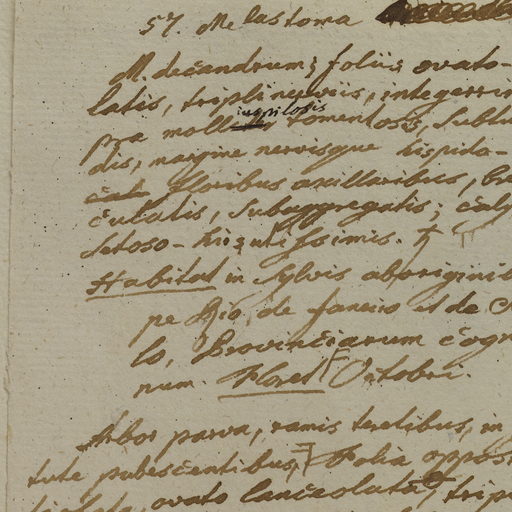 57. Melastoma
M. decandrum; foliis ovato-
latis, triplinerviis, integerri
pra molli tomentosis, subtu
dis; margine nervisque hispido-
floribus axillaribus, br
cutatis, subaggregatis; caly
setoso-hirsutissimis. ♄
Habitat in sylvis aboriginib
pe Rio de Janeiro et de
lo, Provinciarum cogn
num. Floret Octobri.
Arbor parva, ramis teretibus, in
tute pubescentibus, Folia oppos
ovato lanceolata, trip